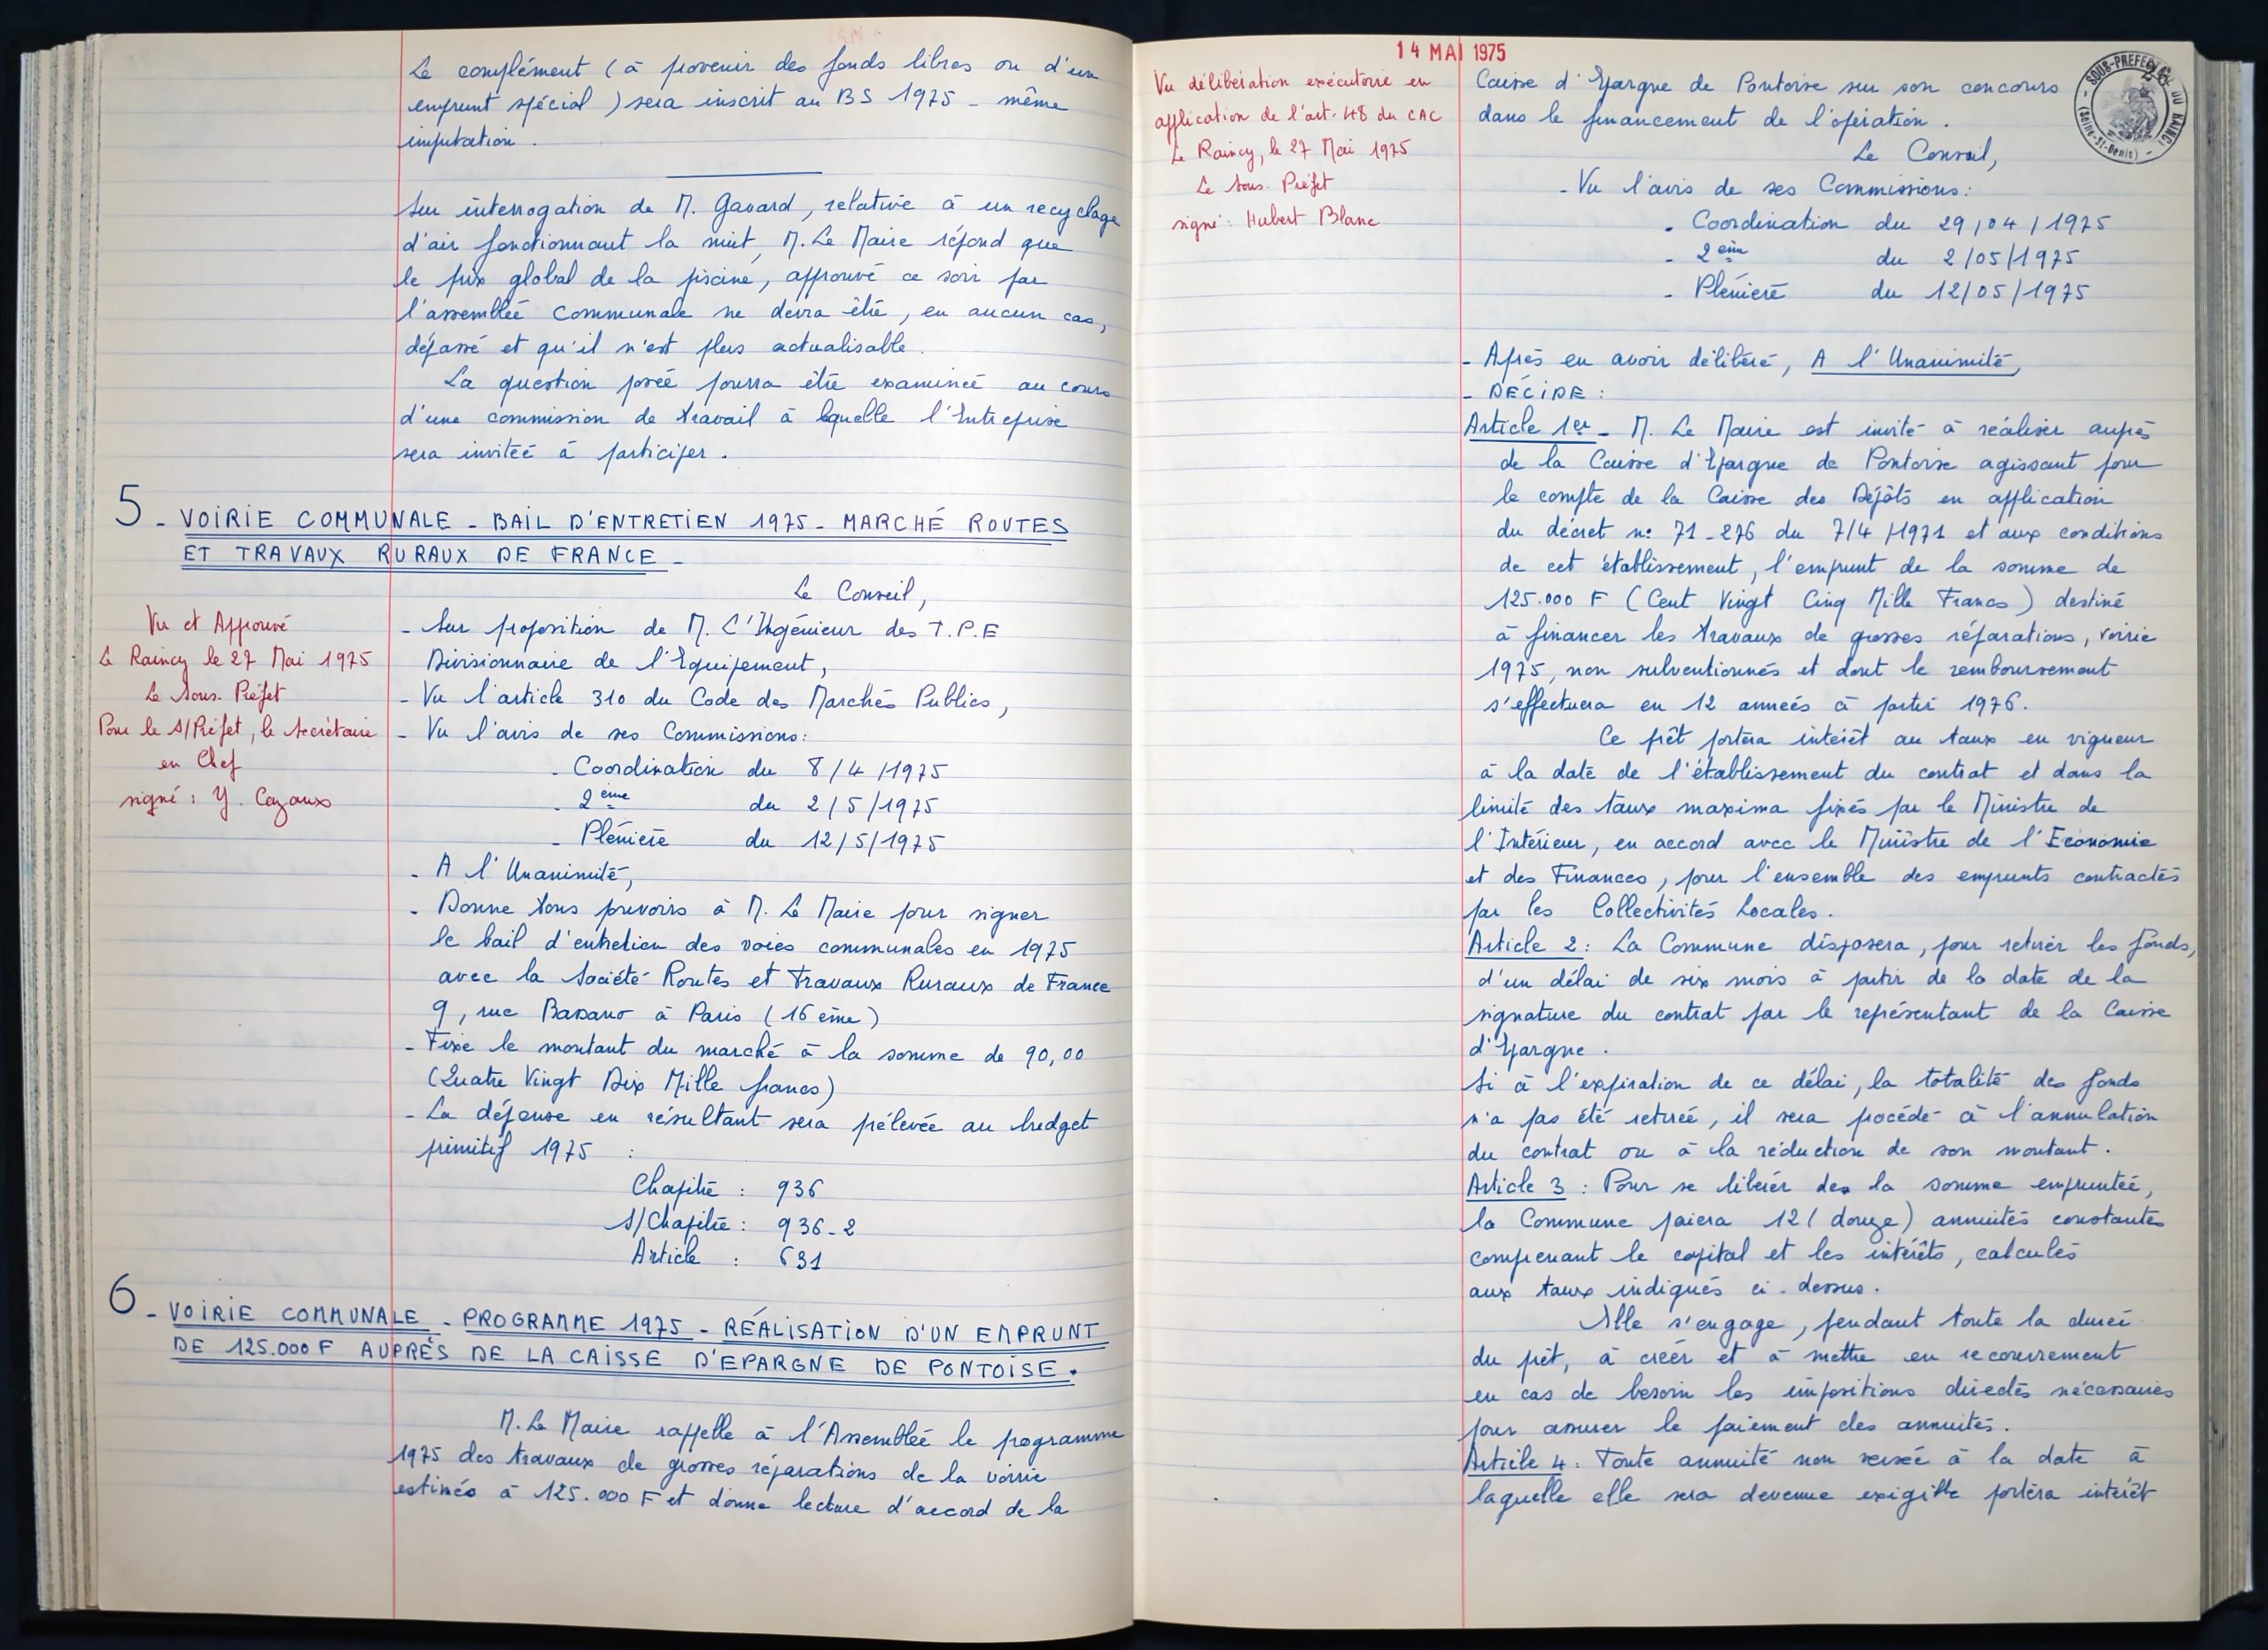 Le complément (à provenir des fonds libres ou d'un
emprunt spécial) sera inscrit au BS 1975 - même
imputation.
Sur interrogation de M. Gavard, relative à un recyclage
d'air fonctionnant la nuit, M. Le Maire répond que
le prix global de la piscine, approuvé ce soir par
l'assemblée communale ne devra être, en aucun cas,
dépassé et qu'il n'est plus actualisable.
La question posée pourra être examinée au cours
d'une commission de travail à laquelle l'Entreprise
sera invitée à participer.
5 - VOIRIE COMMUNALE - BAIL D'ENTRETIEN 1975 - MARCHÉ ROUTES
ET TRAVAUX RURAUX DE FRANCE -
Le Conseil,
Vu et Approuvé
Le Raincy le 27 Mai 1975
Le Sous-Préfet
Pour le S/Préfet, le Secrétaire
en Chef
signé : Y. Cazaux
- Sur proposition de M. L'Ingénieur des T.P.E
Divisionnaire de l'Equipement,
- Vu l'article 310 du Code des Marchés Publics,
- Vu l'avis de ses Commissions :
- Coordination du 8/4/1975
- 2ème du 2/5/1975
- Plénière du 12/5/1975
- A l'Unanimité,
- Donne tous pouvoirs à M. Le Maire pour signer
le bail d'entretien des voies communales en 1975
avec la Société Routes et Travaux Ruraux de France
9, rue Bassano à Paris (16 ème)
- Fixe le montant du marché à la somme de 90,00
(Quatre Vingt Dix Mille francs)
- La dépense en résultant sera prélevée au budget
primitif 1975 :
Chapitre : 936
S/Chapitre : 936-2
Article : 631
6 - VOIRIE COMMUNALE - PROGRAMME 1975 - RÉALISATION D'UN EMPRUNT
DE 125.000 F AUPRÈS DE LA CAISSE D'EPARGNE DE PONTOISE.
M. Le Maire rappelle à l'Assemblée le programme
1975 des travaux de grosses réparations de la voirie
estimés à 125.000 F et donne lecture d'accord de la
14 MAI 1975
Vu délibération exécutoire en
application de l'art. 48 du CAC
Le Raincy, le 27 Mai 1975
Le Sous-Préfet
signé : Hubert Blanc
SOUS-PREFECTURE DU RAINCY
(Seine-St-Denis)
Caisse d'Epargne de Pontoise sur son concours
dans le financement de l'opération.
Le Conseil,
- Vu l'avis de ses Commissions :
- Coordination du 29/04/1975
- 2ème du 2/05/1975
- Plénière du 12/05/1975
- Après en avoir délibéré, A l'Unanimité,
- DÉCIDE :
Article 1er - M. Le Maire est invité à réaliser auprès
de la Caisse d'Epargne de Pontoise agissant pour
le compte de la Caisse des Dépôts en application
du décret n° 71-276 du 7/4/1971 et aux conditions
de cet établissement, l'emprunt de la somme de
125.000 F (Cent Vingt Cinq Mille Francs) destiné
à financer les travaux de grosses réparations, voirie
1975, non subventionnés et dont le remboursement
s'effectuera en 12 années à partir 1976.
Ce prêt portera intérêt au taux en vigueur
à la date de l'établissement du contrat et dans la
limite des taux maxima fixés par le Ministre de
l'Intérieur, en accord avec le Ministre de l'Economie
et des Finances, pour l'ensemble des emprunts contractés
par les Collectivités Locales.
Article 2 : La Commune disposera, pour retirer les fonds,
d'un délai de six mois à partir de la date de la
signature du contrat par le représentant de la Caisse
d'Epargne.
Si à l'expiration de ce délai, la totalité des fonds
n'a pas été retirée, il sera procédé à l'annulation
du contrat ou à la réduction de son montant.
Article 3 : Pour se libérer des la somme empruntée,
la Commune paiera 12 (douze) annuités constantes
comprenant le capital et les intérêts, calculés
aux taux indiqués ci-dessus.
Elle s'engage, pendant toute la durée
du prêt, à créer et à mettre en recouvrement
en cas de besoin les impositions directes nécessaires
pour assurer le paiement des annuités.
Article 4 : Toute annuité non versée à la date à
laquelle elle sera devenue exigible portera intérêt